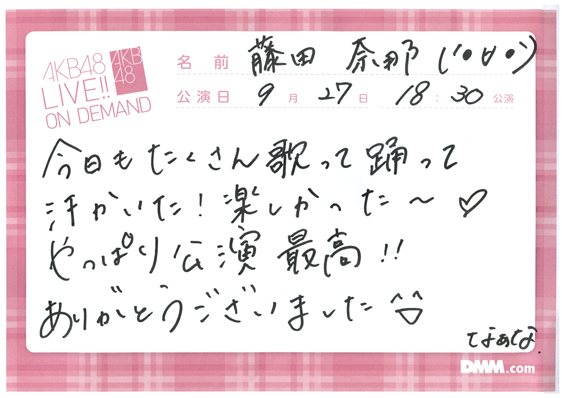 AKB48
LIVE!!
ON DEMAND
AKB
48
名前 藤田 奈那 ('•∀•')
公演日 9月27日 18:30公演
今日もたくさん歌って踊って
汗かいた!楽しかった〜♡
やっぱり公演最高!!
ありがとうございました^^
なぁな.
DMM.com